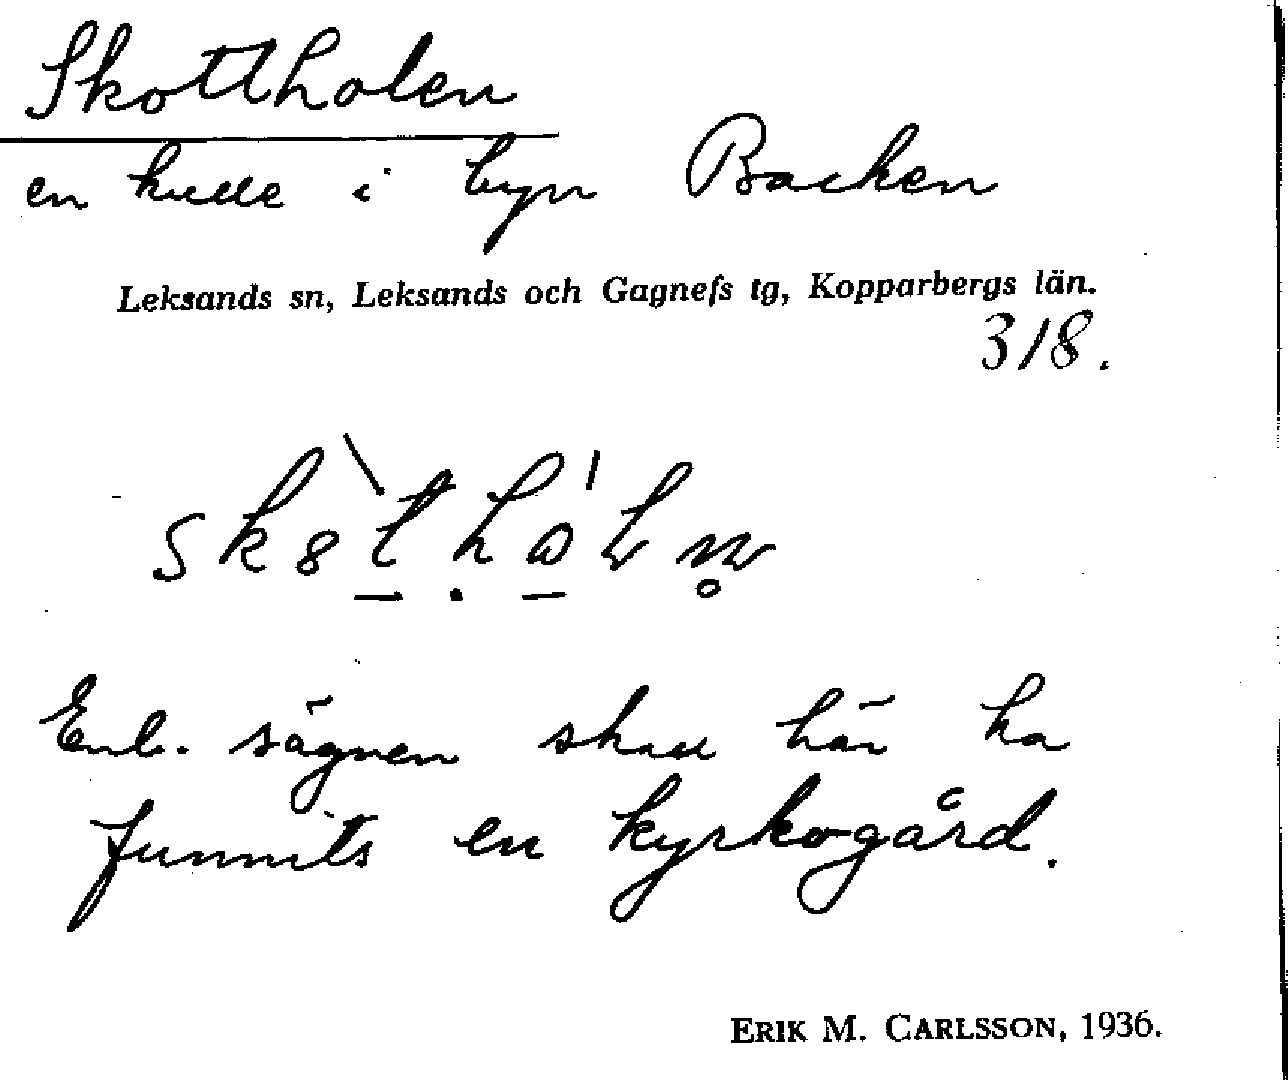 Skottholen
en kulle i byn Backen
Leksands sn, Leksands och Gagnefs tg, Kopparbergs län.
318.
Enl. sägnen skall här ha
funnits en kyrkogård.
ERIK M. CARLSSON, 1936.